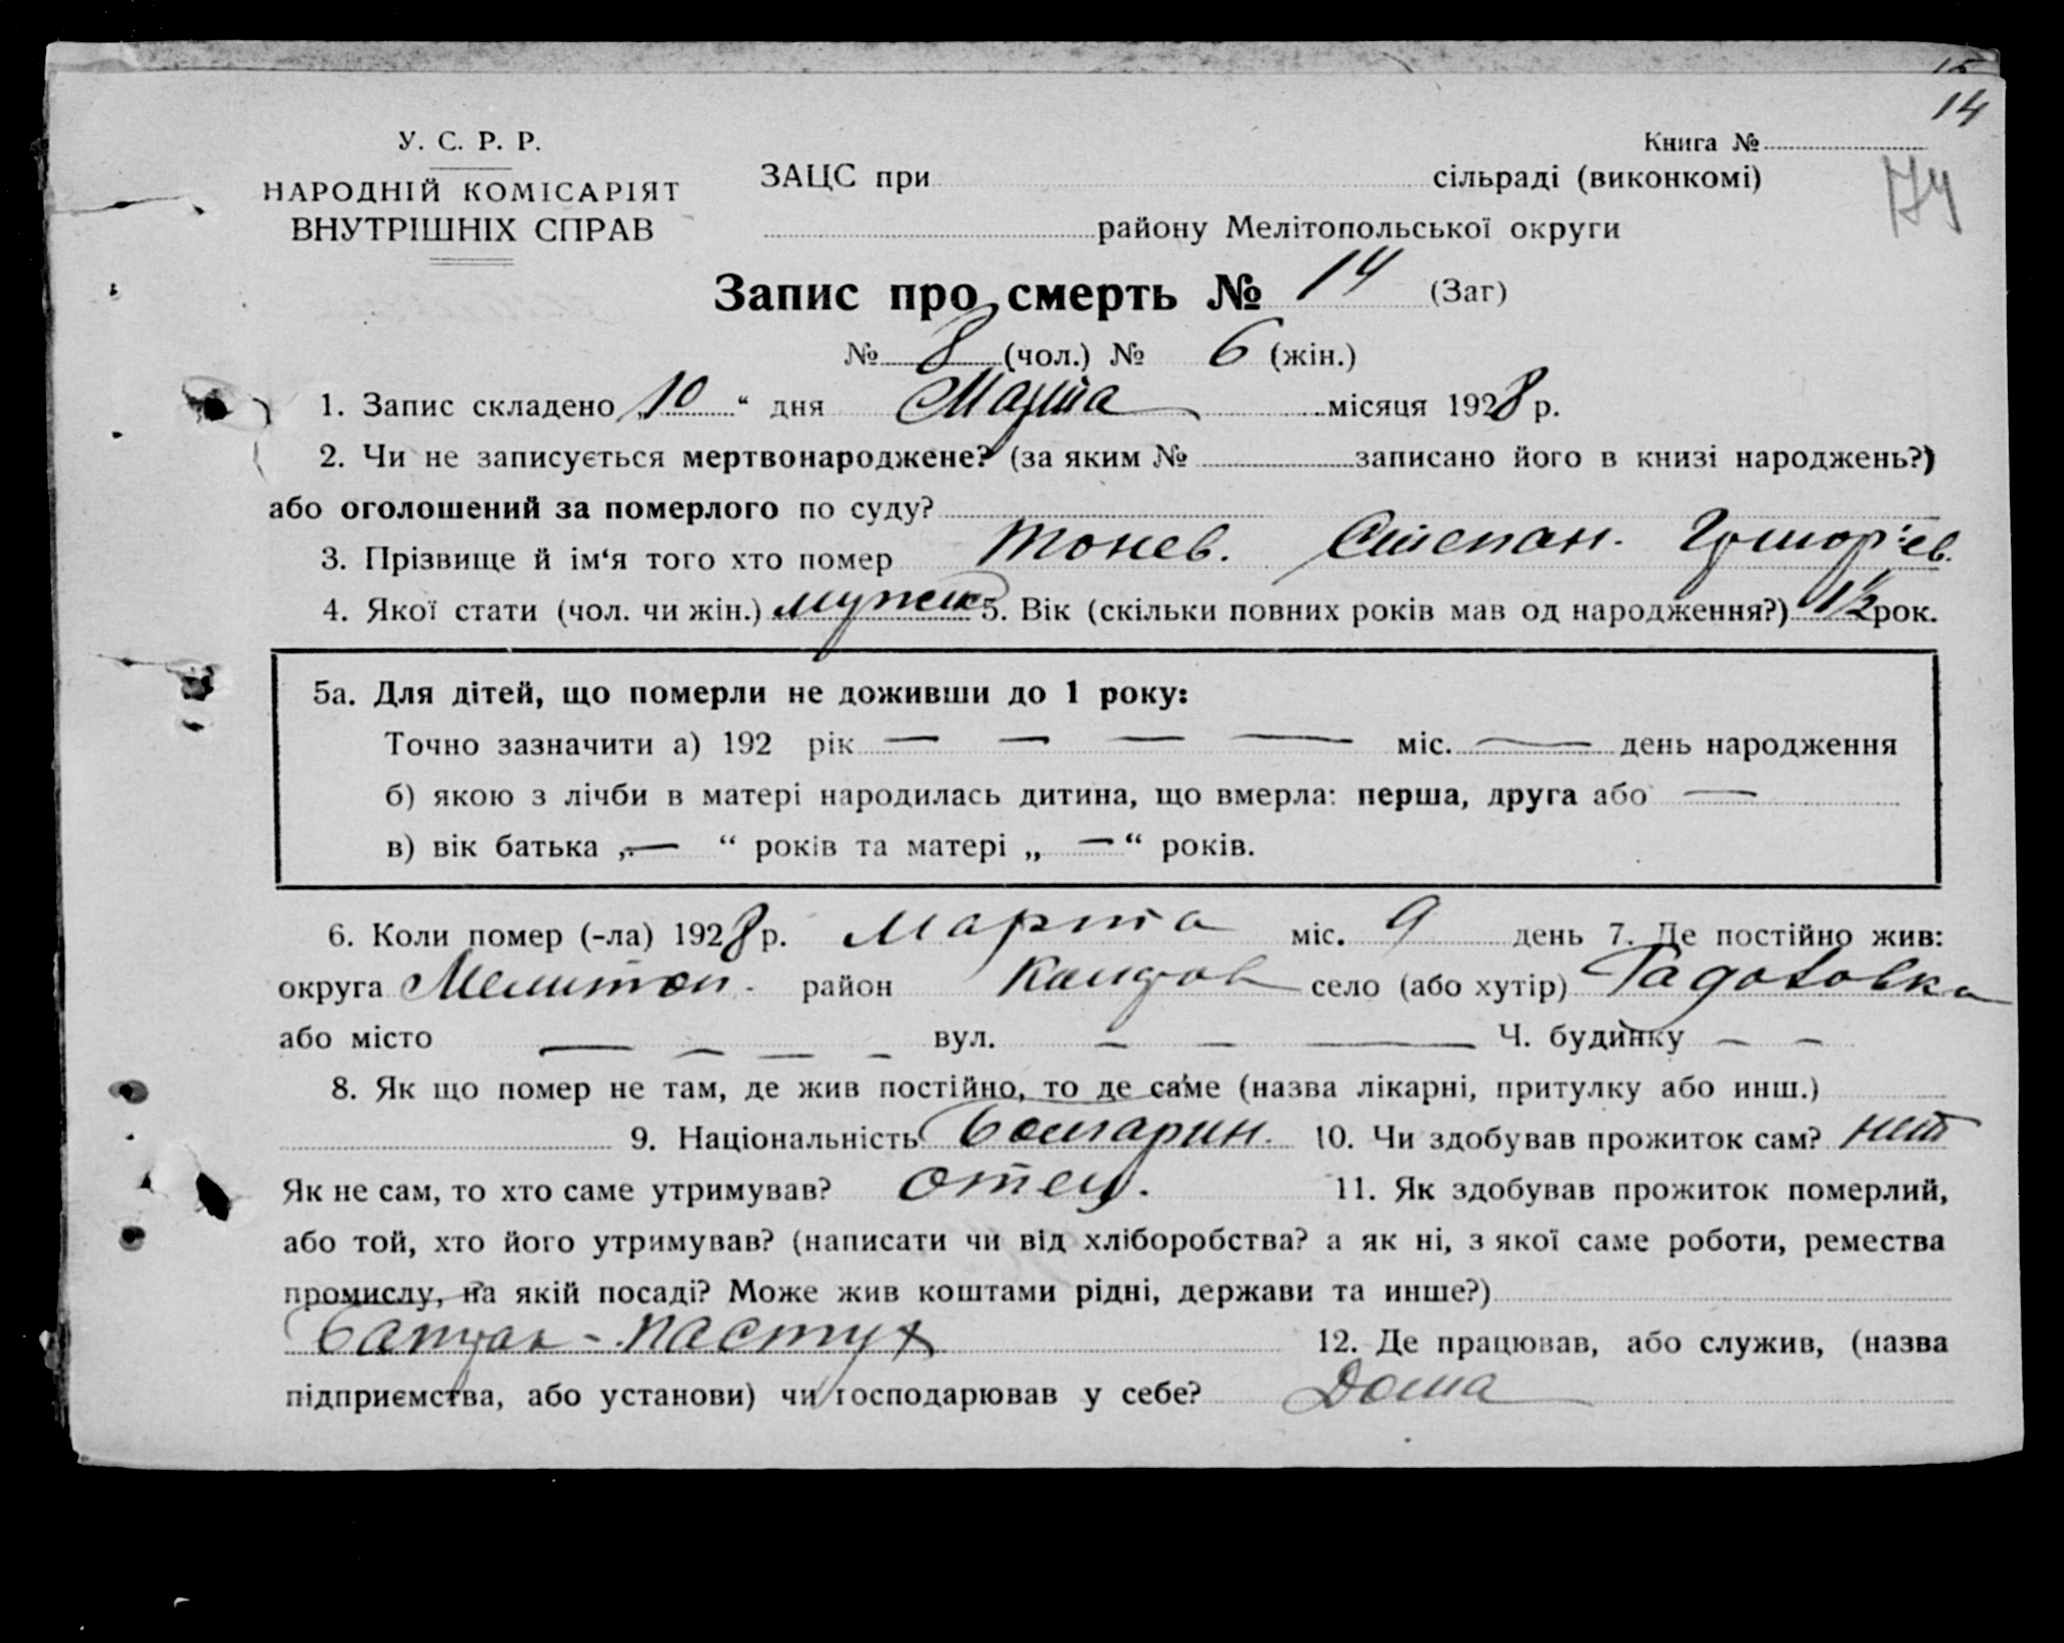 15
14
У. С. Р. Р.
Книга №
НАРОДНІЙ КОМІСАРІЯТ
ВНУТРІШНІХ СПРАВ
ЗАЦС при сільраді (виконкомі)
174
району Мелітопольської округи
Запис про смерть № 14 (Заг)
№ 8 (чол.) № 6 (жін.)
1. Запис складено „10“ дня Марта місяця 1928 р.
2. Чи не записується мертвонароджене? (за яким № записано його в книзі народжень?)
або оголошений за померлого по суду?
3. Прізвище й ім‘я того хто помер Тонев. Степан. Григор'ев.
4. Якої стати (чол. чи жін.) мужск 5. Вік (скільки повних років мав од народження?) 1½ рок.
5а. Для дітей, що померли не доживши до 1 року:
Точно зазначити а) 192 рік — — — — міс. — день народження
б) якою з лічби в матері народилась дитина, що вмерла: перша, друга або —
в) вік батька „— “ років та матері „ —“ років.
6. Коли помер (-ла) 1928 р. Марта міс. 9 день 7. Де постійно жив:
округа Мелитоп. район село (або хутір) Радоловка
або місто — — — — вул. — — — Ч. будинку — —
8. Як що помер не там, де жив постійно, то де саме (назва лікарні, притулку або инш.)
9. Національність Болгарин. 10. Чи здобував прожиток сам? нет
Як не сам, то хто саме утримував? отец. 11. Як здобував прожиток померлий,
або той, хто його утримував? (написати чи від хліборобства? а як ні, з якої саме роботи, ремества
промислу, на якій посаді? Може жив коштами рідні, держави та инше?)
Батрак - пастух 12. Де працював, або служив, (назва
підприємства, або установи) чи господарював у себе? Дома